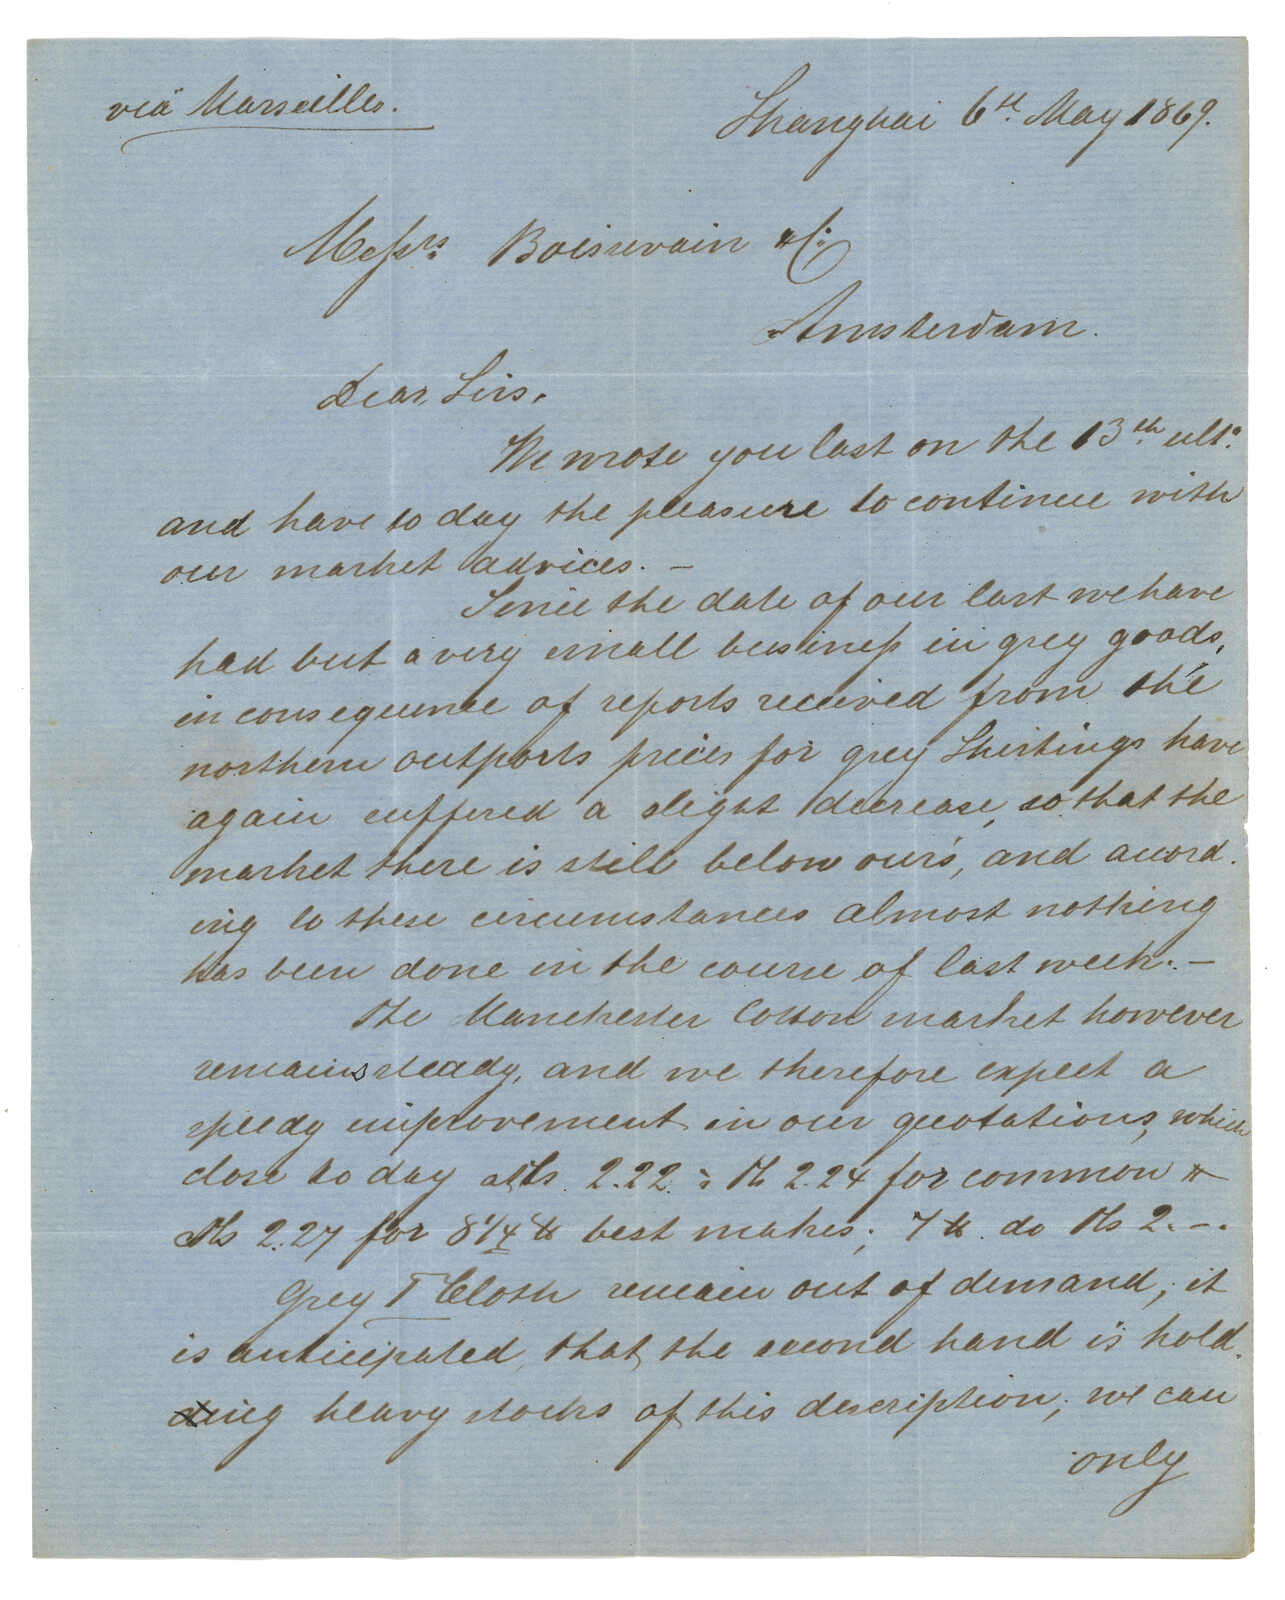 viâ Marseilles.
Shanghai 6th May 1869.
Messrs Boissevain & Co
Amsterdam.
Dear Sirs,
We wrote you last on the 13th ulto.
and have to day the pleasure to continue with
our market advices. —
Since the date of our last we have
had but a very small business in grey goods,
in consequence of reports received from the
northern outports prices for grey Shirtings have
again suffered a slight decrease, so that the
market there is still below our's, and accord-
ing to these circumstances almost nothing
has been done in the course of last week. —
The Manchester Cotton market however
remains steady, and we therefore expect a
speedy improvement in our quotations, which
close to day at Tls 2.22 à Tls 2.24 for common &
Tls 2.27 for 8 1/4 lb best makes; 7 lb. do Tls 2.-.
Grey T Cloth remain out of demand; it
is anticipated, that the second hand is hold-
ing heavy stocks of this description; we can
only